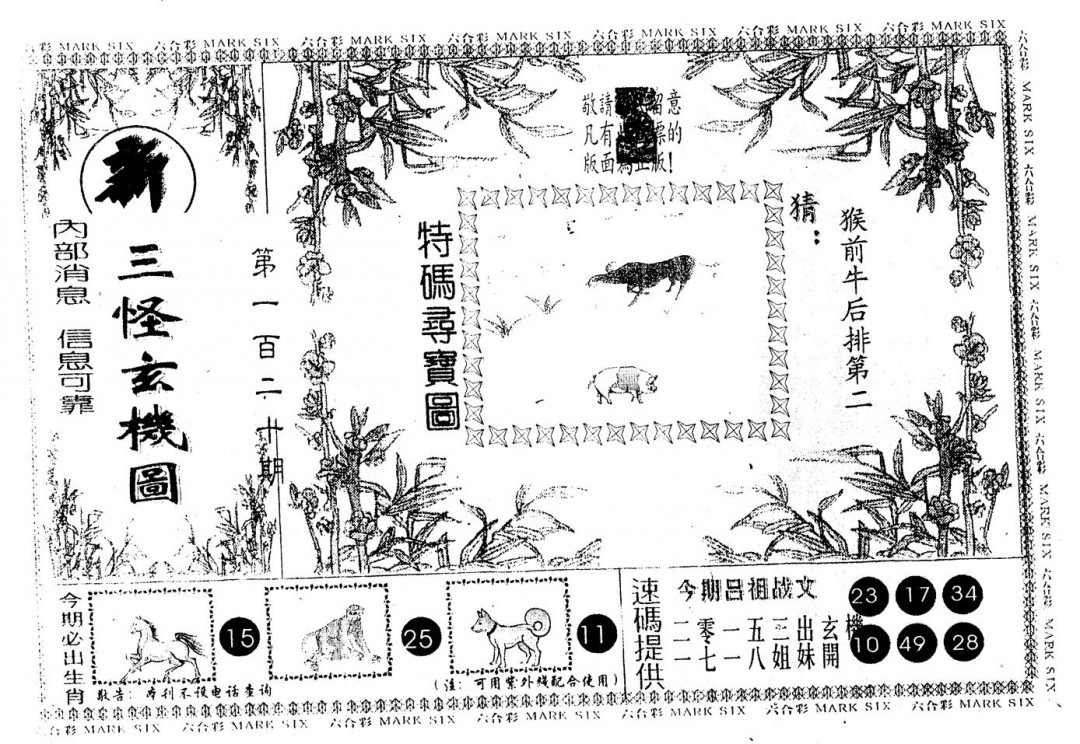 六合彩 MARK SIX 六合彩 MARK SIX 六合彩 MARK SIX 六合彩 MARK SIX 六合彩 MARK SIX 六合彩 MARK SIX 六合彩 MARK SIX
新
三怪玄機圖
內部消息 信息可靠
第一百二十期
敬請 留意
凡有 的
版面為正版!
特碼尋寶圖
猜:
猴前牛后排第二
今期必出生肖
15
25
11
敬告:本刊不设电话查询
(注:可用紫外线配合使用)
速碼提供
今期吕祖战文
二零一五三出玄機
一七一八姐妹開
23 17 34
10 49 28
六合彩 MARK SIX 六合彩 MARK SIX 六合彩 MARK SIX 六合彩 MARK SIX 六合彩 MARK SIX
六合彩 MARK SIX 六合彩 MARK SIX 六合彩 MARK SIX 六合彩 MARK SIX 六合彩 MARK SIX 六合彩 MARK SIX 六合彩 MARK SIX